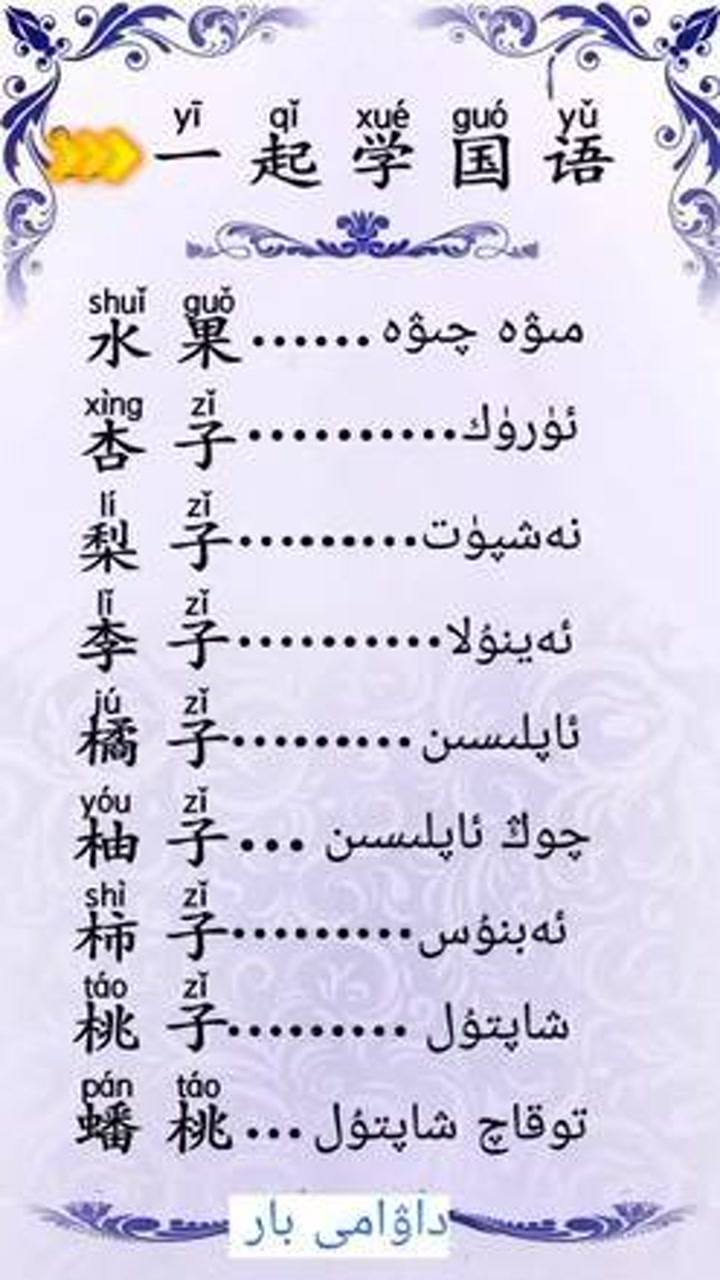 yī qǐ xué guó yǔ
一 起 学 国 语
shuǐ guǒ
水 果......مىۋە چىۋە
xìng zǐ
杏 子..........ئۈرۈك
lí zǐ
梨 子.........نەشپۈت
lǐ zǐ
李 子..........ئەينۇلا
jú zǐ
橘 子.........ئاپلىسىن
yóu zǐ
柚 子... چوڭ ئاپلىسىن
shì zǐ
柿 子.........ئەبنۇس
táo zǐ
桃 子.........شاپتۇل
pán táo
蟠 桃...توقاچ شاپتۇل
داۋامى بار